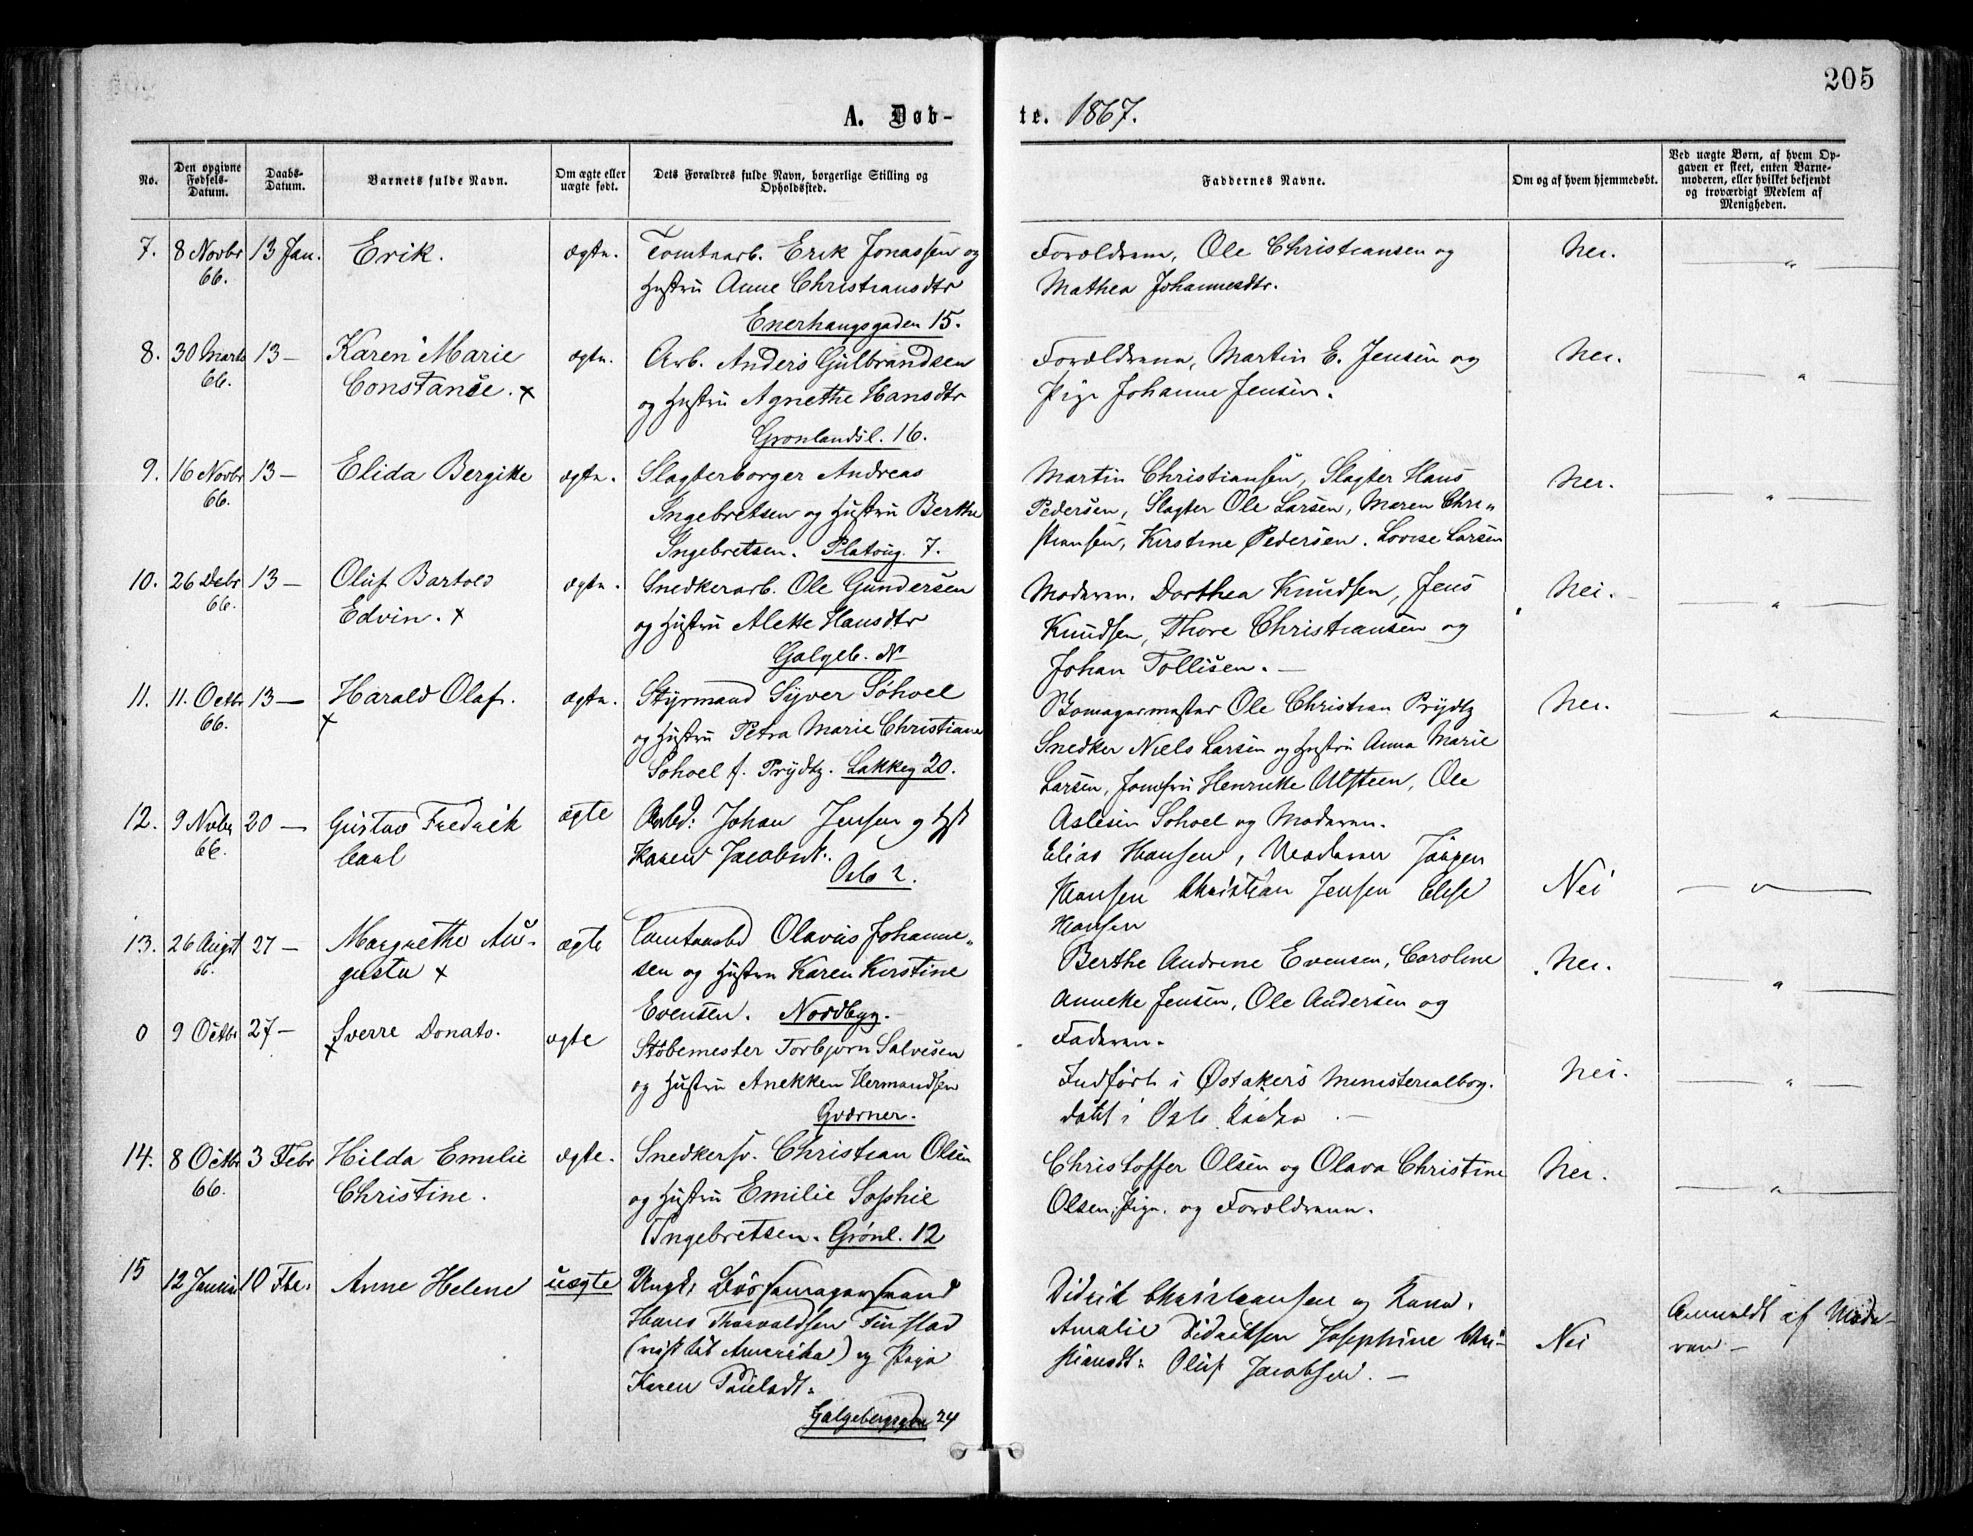 205
A. Døb-
te. 1867.
No.
Den opgivne
Fødsels-
Datum.
Daabs-
Datum.
Barnets fulde Navn.
Om ægte eller
uægte født.
Dets Forældres fulde Navn, borgerlige Stilling og
Opholdssted.
Faddernes Navne.
Om og af hvem hjemmedøbt.
Ved uægte Børn, af hvem Op-
gaven er skeet, enten Barne-
moderen, eller hvilket bekjendt
og troværdigt Medlem af
Menigheden.
7. 8 Novbr 13 Jan. Erik. ægte. Tomtearb. Erik Jonassen og Forældrene, Ole Christiansen og Nei. "
66. Hustru Anne Christiansdtr Mathea Johannesdtr.
Enerhaugsgaden 15.
8. 30 Marts 13 — Karen Marie ægte. Arb. Anders Gulbrandsen Forældrene, Martin E. Jensen og Nei. "
66. Constance. x og Hustru Agnethe Hansdtr Pige Johanne Jensen.
Grønlandsl. 16.
9. 16 Novbr 13 — Elida Bergitte ægte. Slagterborger Andreas Martin Christiansen, Slagter Hans Nei. "
66. Ingebretsen og Hustru Berthe Pedersen, Slagter Ole Larsen, Maren Chri-
Ingebretsen. Platoug. 7. stiansen, Kirstine Pedersen. Lovise Larsen
10. 26 Debr 13 — Oluf Bartold ægte. Snedkerarb. Ole Gundersen Moderen. Dorthea Knudsen, Jens Nei. "
66. Edvin. x og Hustru Alette Hansdtr Knudsen, Thore Christiansen og
Galgeb. N— Johan Tollisen. —
11. 11. Octbr 13 — Harald Olaf. ægte. Styrmand Syver Sohoel Skomagermester Ole Christian Prydtz Nei. "
66. x og Hustru Petra Marie Christiane Snedker Niels Larsen og Hustru Anna Marie
Sohoel f. Prydtz. Lakkeg 20. Larsen, Jomfru Henrikke Ulsteen, Ole
Aslesen Sohoel og Moderen.
12. 9 Nvbr 20 — Gustav Fredrik ægte Arbd: Johan Jensen og Hst Elias Hansen, Moderen Jørgen Nei "
66. Carl Karen Jacobsd. Hansen Christian Jensen Else
Oslo 2. Hansen
13. 26 Augst 27 — Margrethe Au- ægte Tomtearbd Olavus Johanne- Berthe Andrine Evensen, Caroline Nei. "
66. gusta x sen og Hustru Karen Kirstine Anneke Jensen, Ole Andersen og
Evensen. Nordbyg. Faderen.
0 9 Octbr 27 — Sverre Donato. ægte Støbemester Torbjørn Salvesen Indført i Østakers Ministerialbog. Nei. "
x og Hustru Anekken Hermandsen døbt i Oslo Kirke. —
Gværner.
14. 8 Octbr 3 Febr Hilda Emilie ægte. Snedkersv. Christian Olsen Christoffer Olsen og Olava Christine Nei. "
66. Christine. og Hustru Emilie Sophie Olsen, Pige. og Forældrene.
Ingebretsen. Grønl. 12
15 12 Januar 10 Fbr. Anne Helene uægte Ungk: Bøssemagersvend Didrik Christiansen og Kone. Anmeldt af Mode-
Hans Thorvaldsen Finstad Amalie Didriksen Josephine Chri- Nei ren —
(reist til Amerika) og Pige stiansdt: Oluf Jacobsen. —
Karen Paulsdt:
Galgebergsgdn 24